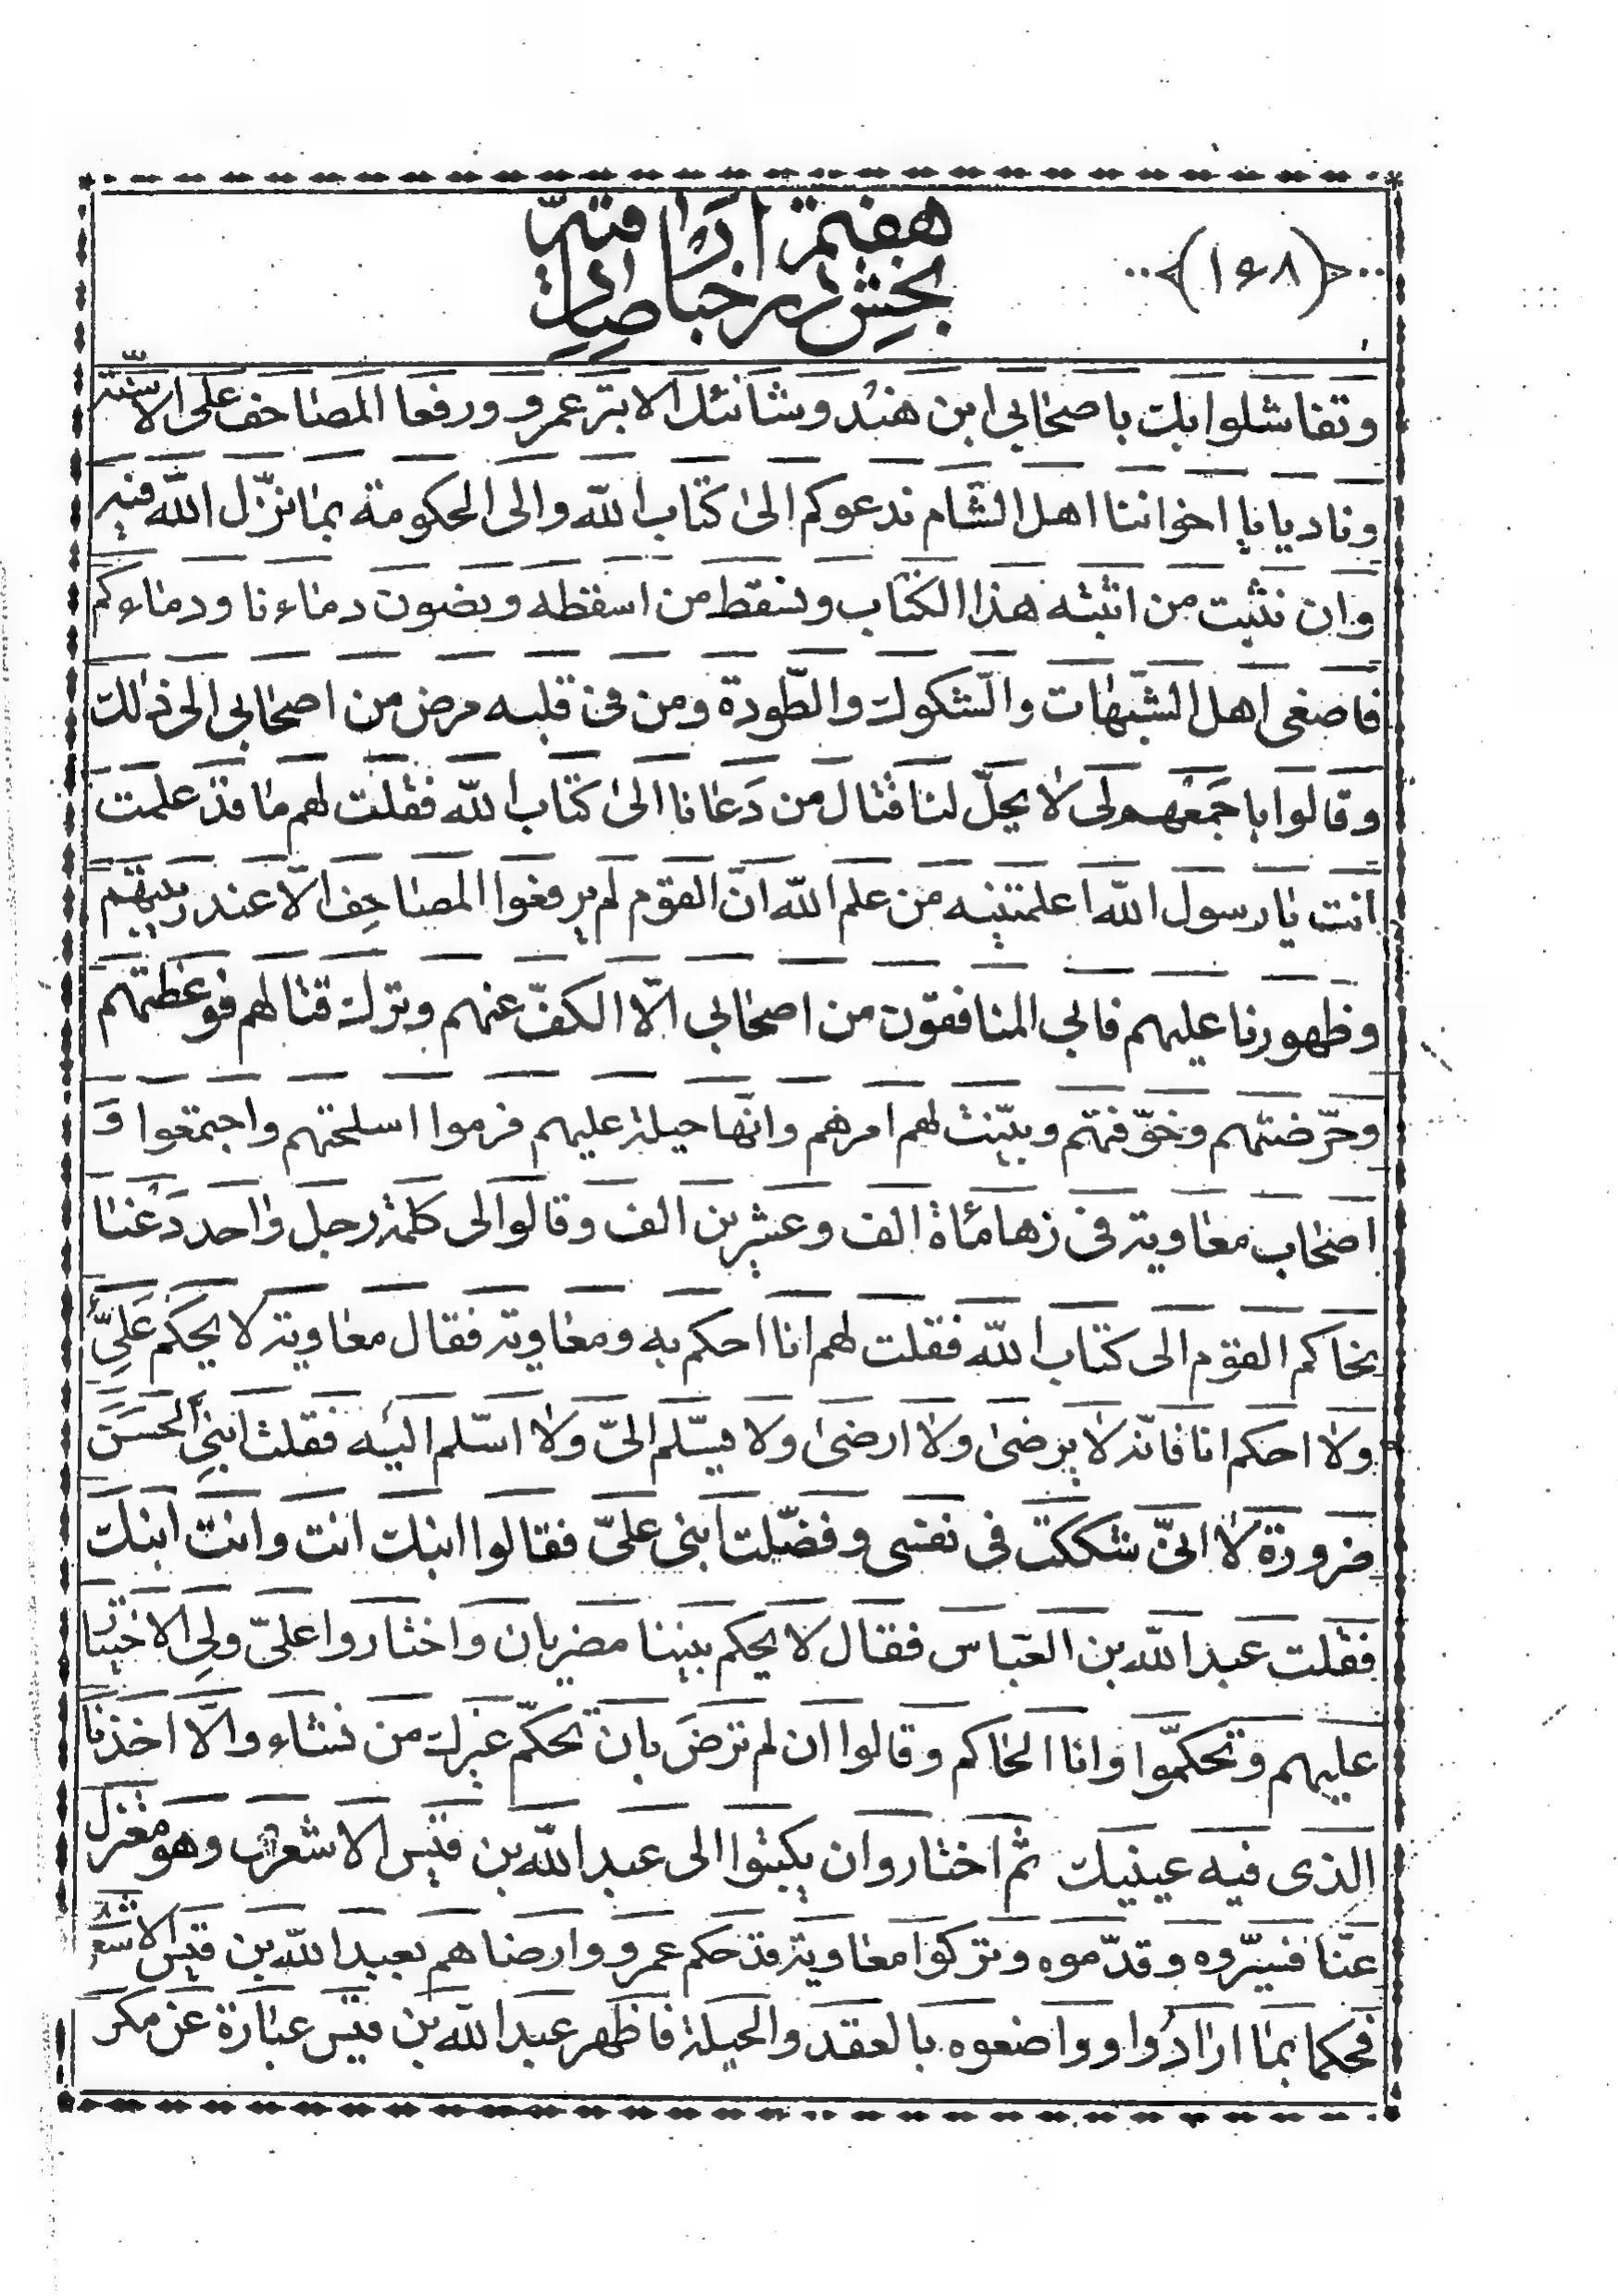 ﴿١٦٨﴾
بخش هفتم در اخبار
وتفاشلوا بك باصحابي ابن هند وشانئك الابتر عمرو ورفعا المصاحف على الاسنّة
وناديا يا اخواننا اهل الشّام ندعوكم الى كتاب الله والى الحكومة بما نزّل الله فيه
وان نثبت من اثبته هذا الكتاب ونسقط من اسقطه ويصون دماءنا ودماءكم
فاصغى اهل الشّبهات والشّكوك والطّودة ومن في قلبه مرض من اصحابي الى ذلك
وقالوا باجمعهم لى لا يحلّ لنا قتال من دعانا الى كتاب الله فقلت لهم ما قد علمت
انت يا رسول الله اعلمتنيه من علم الله انّ القوم لم يرفعوا المصاحف الّا عند ريبهم
وظهورنا عليهم فابي المنافقون من اصحابي الّا الكفّ عنهم وترك قتالهم فوعظتهم
وحرّضتهم وخوّفتهم وبيّنت لهم امرهم وانّها حيلة عليهم فرموا اسلحتهم واجتمعوا و
اصحاب معاوية في زهامأة الف وعشرين الف وقالوا لى كلمة رجل واحد دعنا
يحاكم القوم الى كتاب الله فقلت لهم انا احكم به ومعاوية فقال معاوية لا يحكم علىّ
ولا احكم انا فانّه لا يرضى ولا ارضى ولا يسّلم الىّ ولا اسّلم اليه فقلت ابني الحسن
ضرورة لا انىّ شككت في نفسى وفضّلت ابني علىّ فقالوا ابنك انت وانت ابنك
فقلت عبد الله بن العبّاس فقال لا يحكم بيننا مضريان واختاروا علىّ ولى الاختيار
عليهم وتحكمّوا وانا الحاكم وقالوا ان لم ترض بان تحكّم غيرك من نشاء والّا اخذنا
الذى فيه عينيك ثم اختاروا ان يكتبوا الى عبد الله بن قيس الاشعرى وهو معزل
عنّا فسيّروه وقدّموه وتركوا معاوية قد حكم عمرو وارضاهم بعبد الله بن قيس
فحكما بما ارادوا وواضعوه بالعقد والحيلة فاظهر عبد الله بن قيس عبارة عن مكر